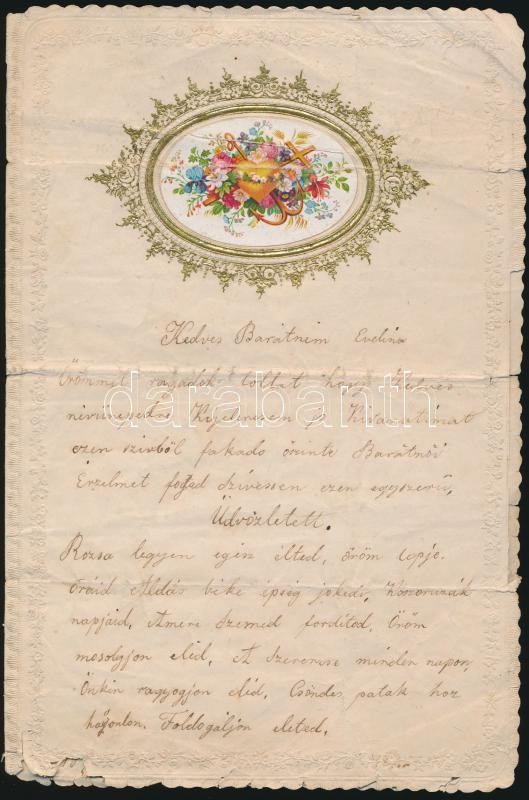 Kedves Barátném Evelina
Örömmel ragadok tollat hogy Kedves
ezen szivböl fakado öszinte Barátnöi
Érzelmet fogad szivessen ezen egyszerü,
Üdvözletett.
Rozsa legyen egész élted, öröm lepje
óráid Áldás béke épség jokedv, Koszoruzák
napjaid, Amere szemed forditod, Öröm
mosolyjon eléd, A Szerencse minden napon,
Önkin ragyogjon eléd, Csöndes patak hoz
hasonlon. Foldogáljon eleted.
darabanth